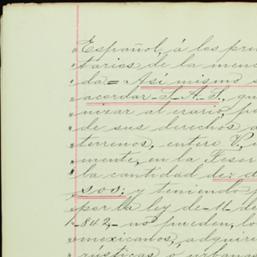 Español, á los pre
tarios de la mens
da = Así mismo s
acordar S. A. S. qu
nizar al erario pu
de sus derechos a
terrenos, entere V.
mente, en la Teser
la cantidad de d
sos; y teniendo p
por la ley de 11 de
1842, no pueden, lo
mexicanos, adquirir
rústicas ó urbanas